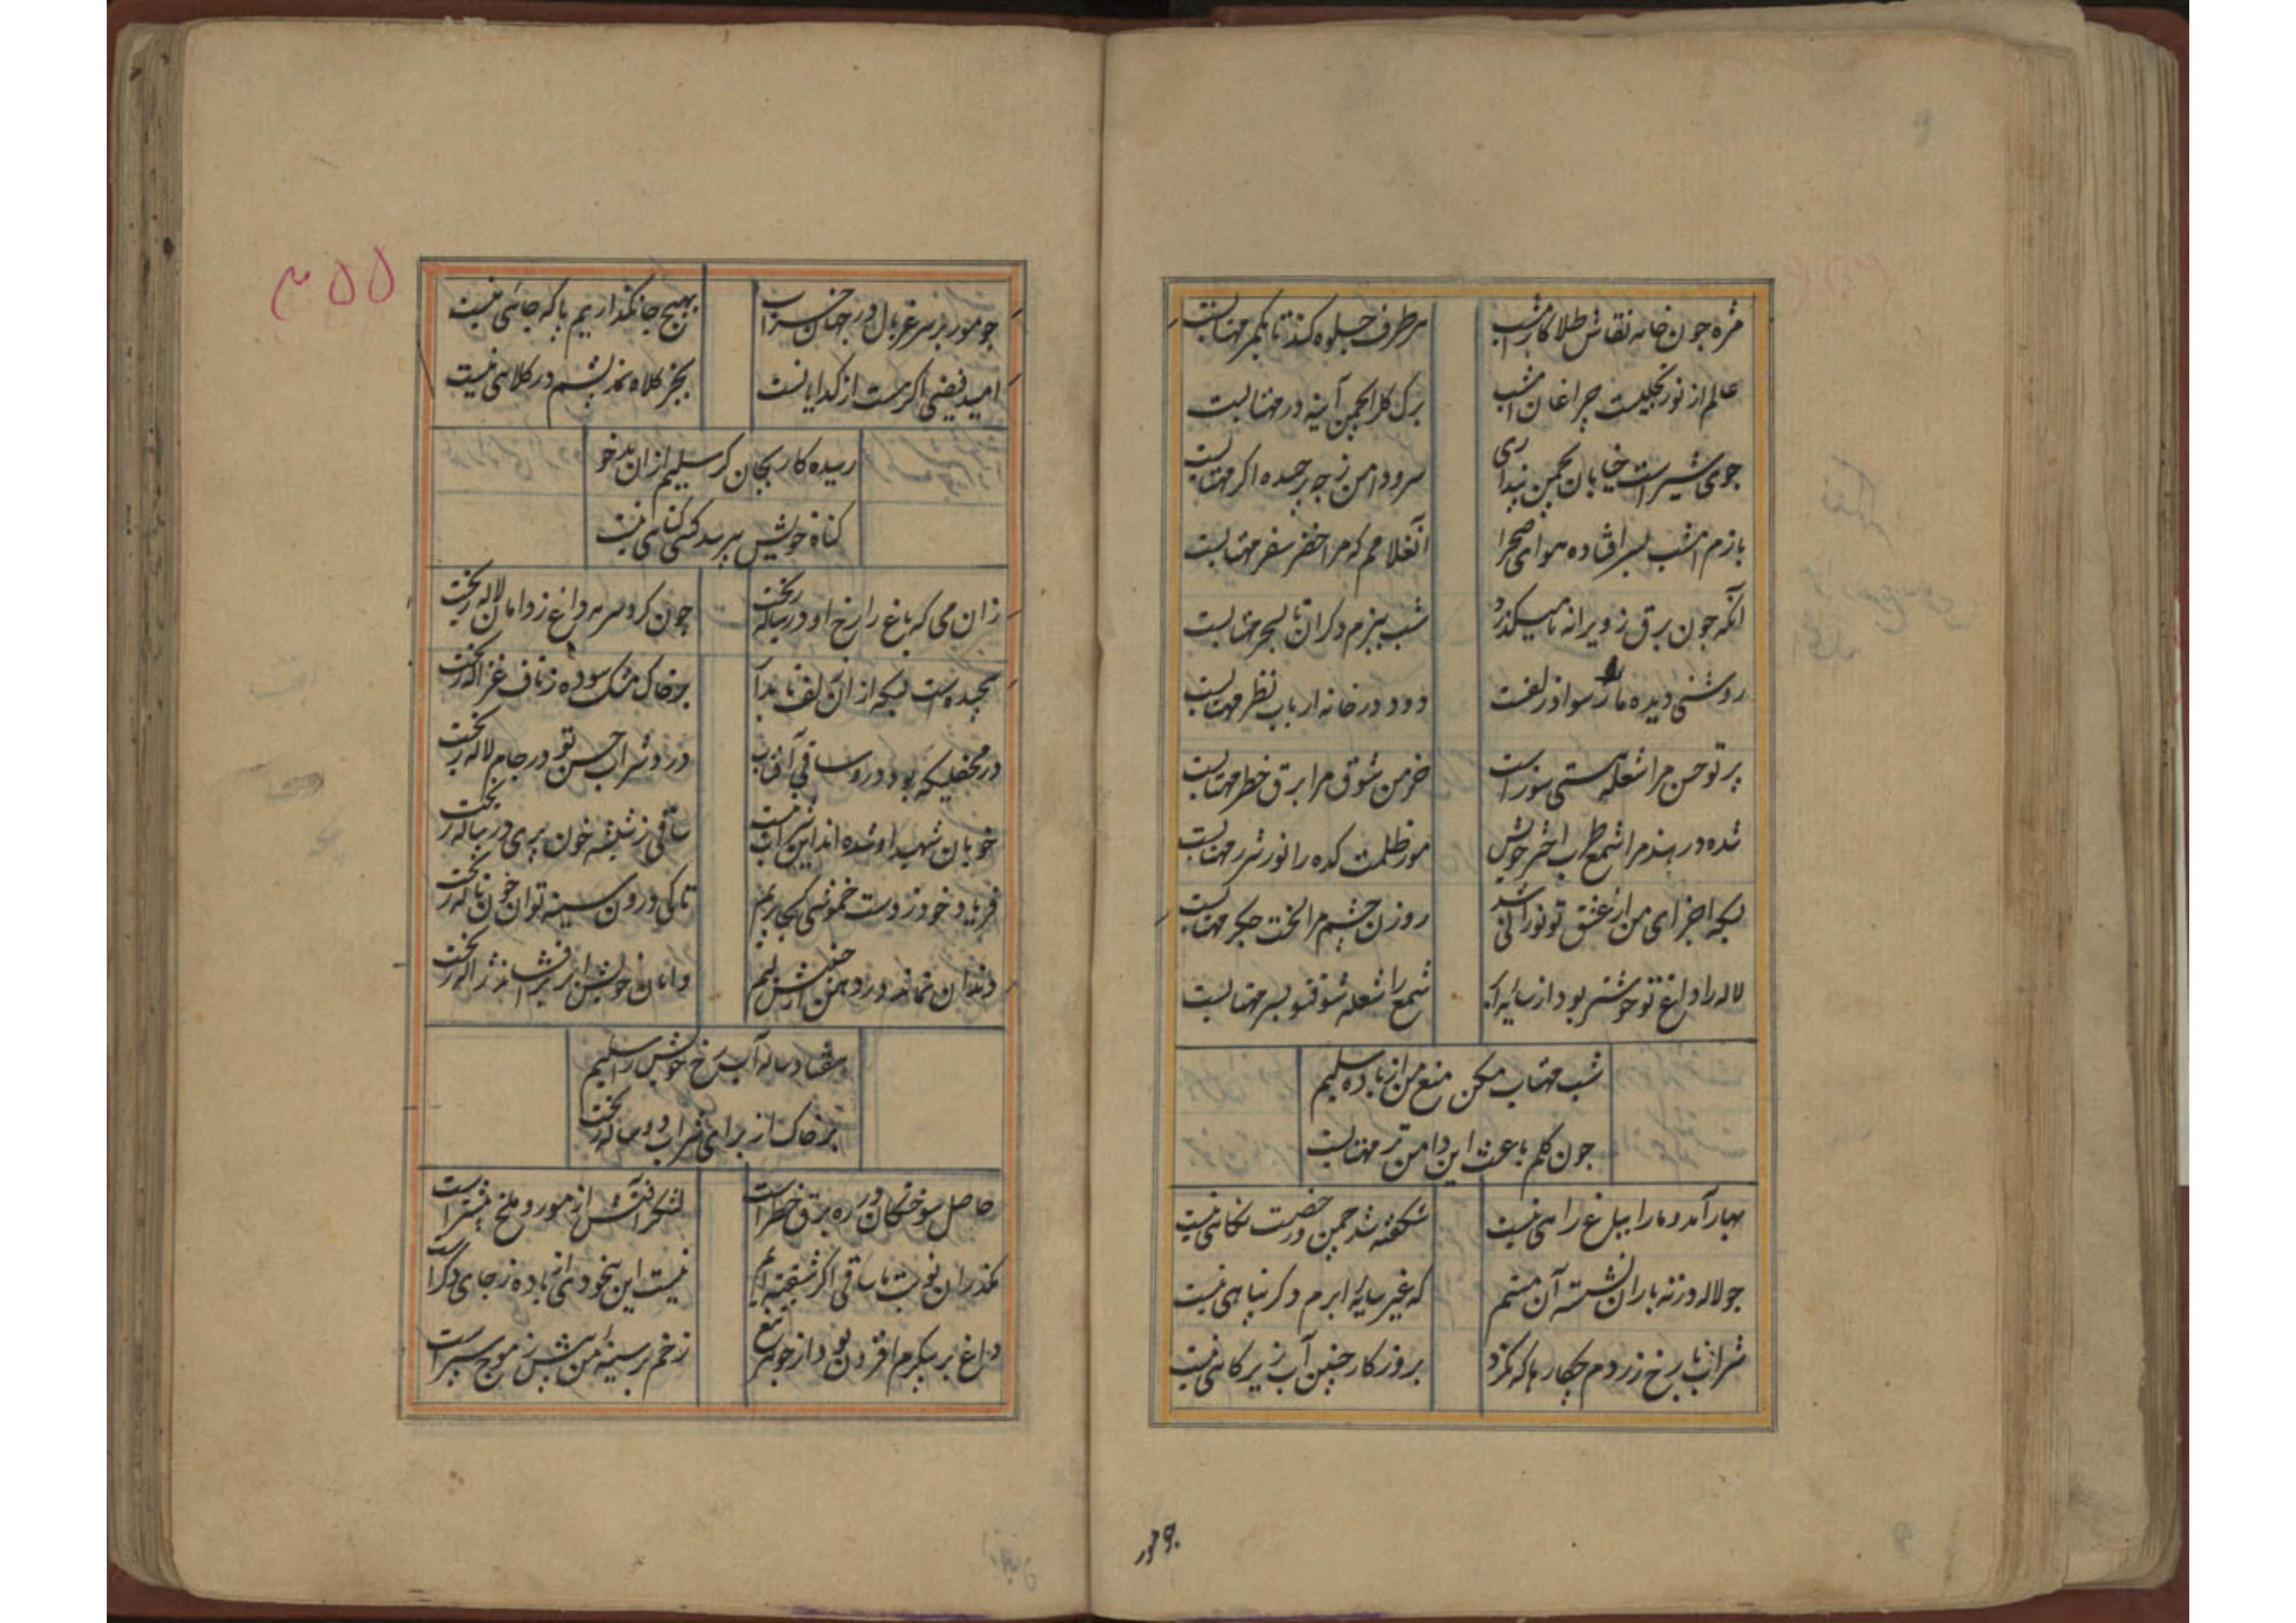 مژه چون خامه نقاش طلا کار امشب هر طرف جلوه کند تا بکمر مهتابست
عالم از نور تجلیست چراغان امشب برک کل انجمن آینه در مهتابست
جوی شیر است خیابان چمن پنداری سرو دامن ز چه بر چیده اکر مهتابست
بازم امشب بسر افتاده هوای صحرا که مرا خضر سفر مهتابست
آنکه چون برق ز ویرانه ما میکذرد شب ببزم دکران تا بسحر مهتابست
روشنی دیده ما را سواد زلفت دود در خانه ارباب نظر مهتابست
پرتو حسن مرا شعله هستی سوز است خرمن شوق مرا برق خطر مهتابست
شده در هند مرا شمع طرب اختر خویش مور ظلمت کده را نور شرر مهتابست
بسکه اجزای من از عشق تو نورانی شد روزن چشم مرا لخت جکر مهتابست
لاله را داغ تو خوشتر بود از سایه ابر شمع را شعله شوق تو بسر مهتابست
شب مهتاب مکن منع من از باده سلیم
چون کلم باعث این دامن تر مهتابست
بهار آمد و ما را بباغ راهی نیست شکفته شد چمن و رخصت نکاهی نیست
جو لاله در ته باران نشسته آن مستم که غیر سایه ابرم دکر پناهی نیست
شراب با رخ زردم چکارها که نکرد بروزکار چنین آب زیر کاهی نیست
جو مور بر سر غربال در جهان خراب بهیچ جا نکذاریم پا که چاهی نیست
امید فیضی اکر هست از کدایانست بجز کلاه نمد پشم در کلاهی نیست
رسیده کار بجان کر سلیم از ان بدخو
کناه خویش بپرسد کسی کناهی نیست
زان می که باغ را رخ او در پیاله ریخت چون کرد سرمه داغ ز دامان لاله ریخت
پیچیده است بسکه از ان زلف تابدار بر خاک مشک سوده ز ناف غزاله ریخت
در محفلیکه بود درو ساقی آفتاب درد شراب حسن تو در جام لاله ریخت
خوبان شهید او شده اند این شراب نیست ساقی ز شیشه خون پری در پیاله ریخت
فریاد خود ز دست خموشی کجا بریم تا کی درون سینه توان خون ناله ریخت
دندان نماند در دهن دامان خویش ابر فشاند ژاله ریخت
هفتاد ساله آب رخ خویش را سلیم
بر خاک از برای شراب دو ساله ریخت
حاصل سوختکان در ره برق خطر است لشکر آفتش از مور و ملخ بیشتر است
مکذران نوبت ما ساقی اکر نیست این بیخودی از باده ز جای دکر است
داغ بر پیکرم افزون بود از جوهر تیغ زخم بر سینه من بیش ز موج سپر است
۳۵۵